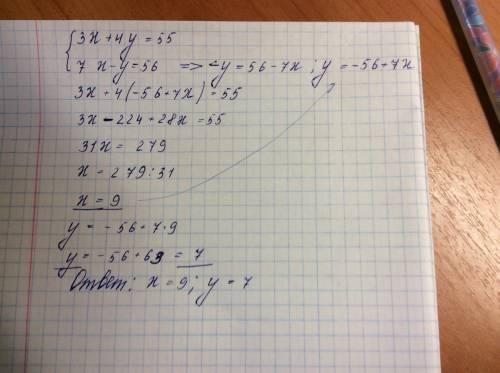 { 3x + 4y = 55
7x - y = 56 => -y = 56 - 7x ; y = -56 + 7x
3x + 4(-56 + 7x) = 55
3x - 224 + 28x = 55
31x = 279
x = 279 : 31
x = 9
y = -56 + 7·9
y = -56 + 63 = 7
Ответ: x = 9; y = 7